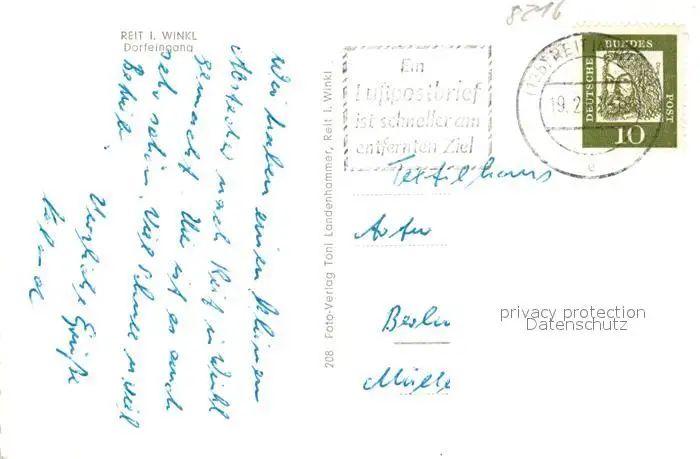 8216
REIT I. WINKL
Dorfeingang
Wir haben einen kleinen
Abstecher nach Reit i. Winkl
gemacht. Hier ist es auch
sehr schön. Viel Schnee u. viel
Betrieb.
Herzliche Grüße
208 Foto-Verlag Toni Landenhammer, Reit i. Winkl
Ein
Luftpostbrief
ist schneller am
entfernten Ziel
REIT I
19.2.
e
DEUTSCHE BUNDES POST
10
Textilhaus
Berlin
privacy protection
Datenschutz